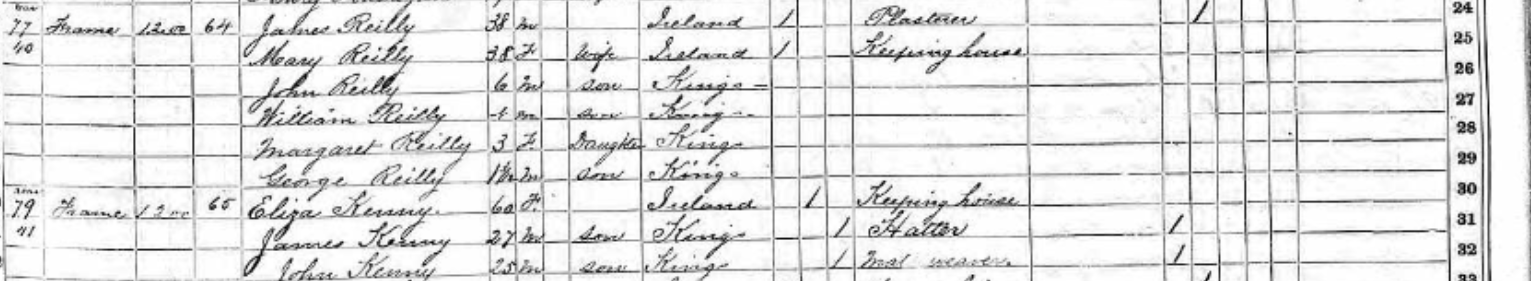 24
77 Frame 1200 64 James Reilly 38 m Ireland 1 Plasterer 1
40 25
Mary Reilly 38 F wife Ireland 1 Keeping house
26
John Reilly 6 m son Kings -
27
William Reilly 4 m son Kings -
28
Margaret Reilly 3 F. Daughter Kings
29
George Reilly m son Kings
30
79 Frame 1200 65 Eliza Kenny. 60 F. Ireland 1 Keeping house
41 31
James Kenny 27 m son Kings 1 Hatter 1
32
John Kenny 25 m son Kings 1 weaver 1
33